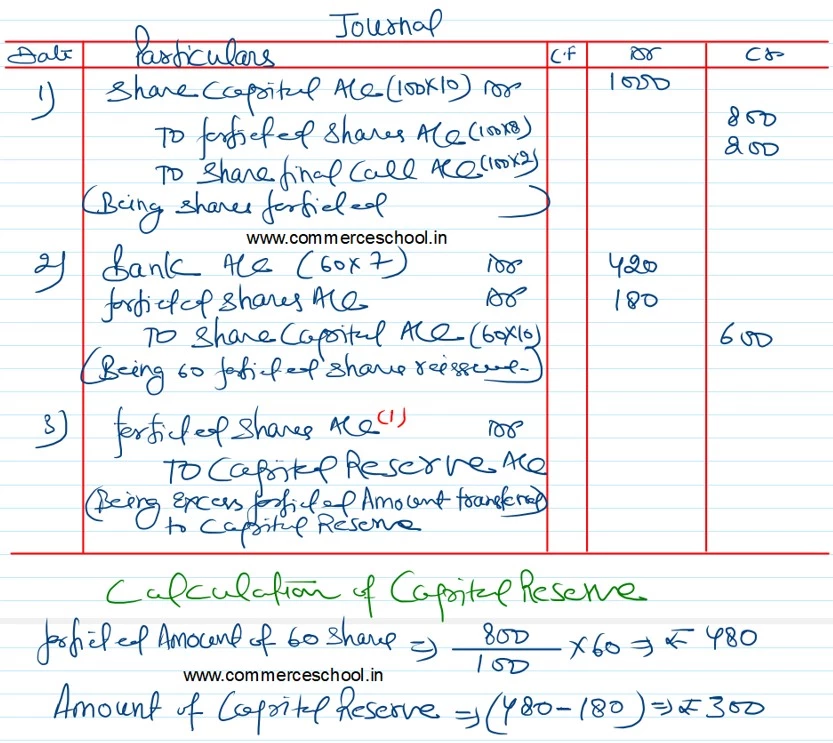 Journal
Date Particulars C.F Dr Cr
1) Share Capital A/c (100x10) Dr 1000
To forfieted Shares A/c (100x8) 800
To Share final Call A/c (100x2) 200
(Being shares forfieted)
www.commerceschool.in
2) Bank A/c (60x7) Dr 420
forfieted shares A/c Dr 180
To Share Capital A/c (60x10) 600
(Being 60 forfieted share reissued.)
3) forfieted Shares A/c (1) Dr
To Capital Reserve A/c
(Being Excess forfieted Amount transferred
to Capital Reserve
Calculation of Capital Reserve
forfieted Amount of 60 Share ⇒ 800/100 x 60 ⇒ ₹ 480
www.commerceschool.in
Amount of Capital Reserve ⇒ (480-180) ⇒ ₹ 300